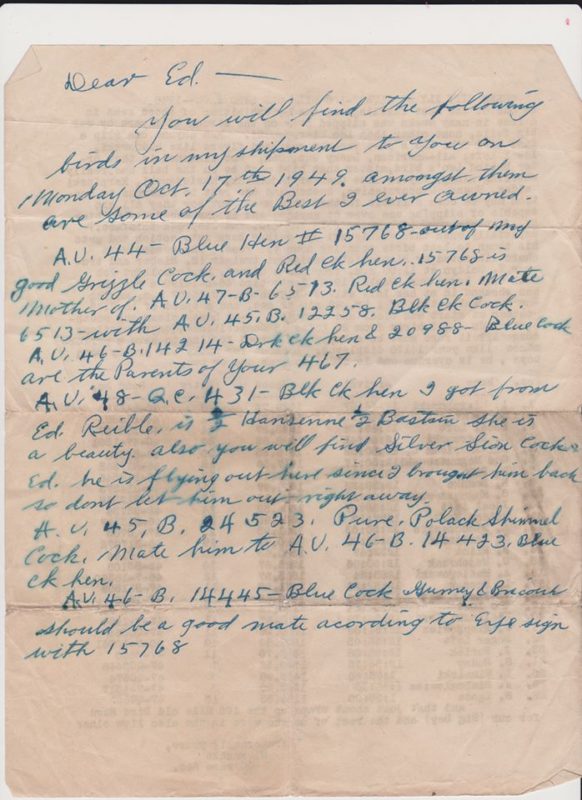 Dear Ed. —
You will find the following
birds in my shipment to you on
Monday Oct. 17th 1949. amongst them
are some of the Best I ever owned.
A.U. 44 - Blue Hen # 15768 - out of my
good Grizzle Cock. and Red ck hen. 15768 is
Mother of. A.U. 47-B- 6513. Red ck hen. Mate
6513 - with A.U. 45. B. 12258. Blk ck Cock.
A.U. 46-B. 14214 - Drk ck hen & 20988 - Blue Cock
are the Parents of Your 467.
A.U. 48- Q.C. 431 - Blk ck hen I got from
Ed. Reible. is ½ Hansenne ½ Bastin she is
a beauty. also you will find Silver Sion Cock.
Ed. he is flying out here since I brought him back
so dont let him out right away.
A. U. 45, B. 24523. Pure. Polack Shimmel
Cock. Mate him to A.U. 46-B. 14423. Blue
ck hen.
A.U. 46- B. 14445 - Blue Cock Gurney & Bricoux
should be a good mate acording to Eye sign
with 15768